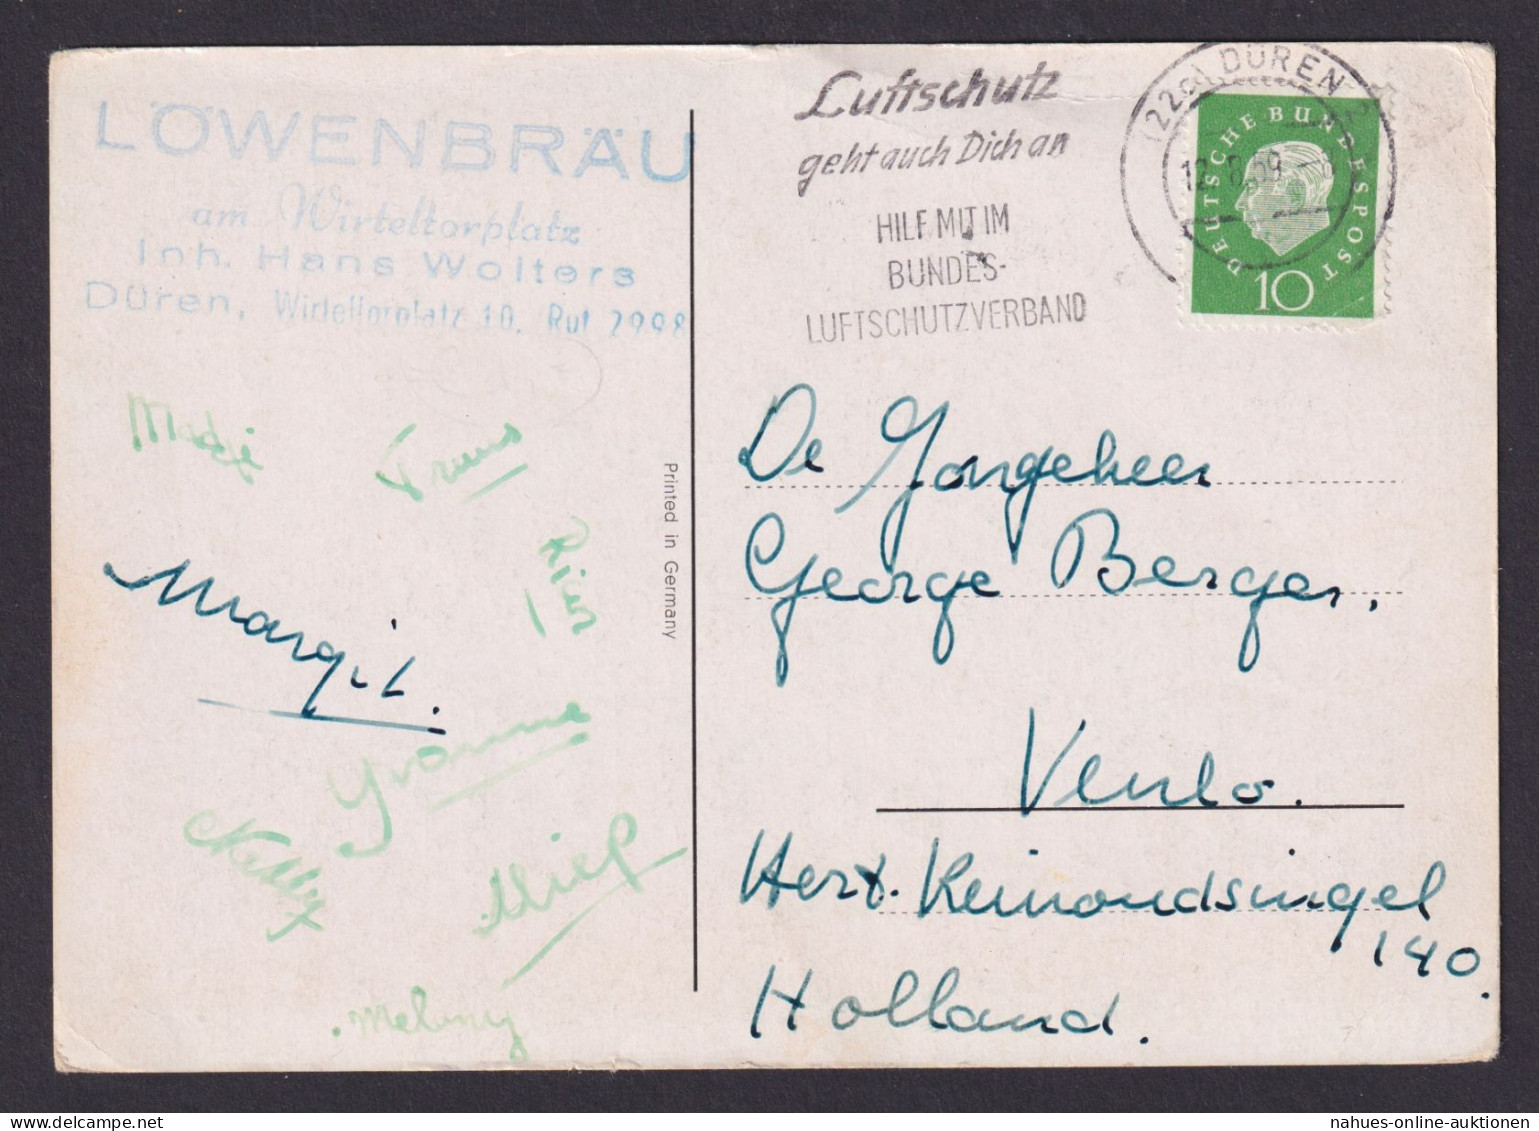 LÖWENBRÄU
am Wirteltorplatz
Inh. Hans Wolters
Düren, Wirteltorplatz 10, Ruf 2998
Luftschutz
geht auch Dich an
HILF MIT IM
BUNDES-
LUFTSCHUTZVERBAND
(22c) DÜREN
12. 8. 59. -8
DEUTSCHE BUNDESPOST
10
Truus
Rier
Margit.
Yvonne
Nelly
Miep
Melony
Printed in Germany
De Jongeheer
George Berger.
Venlo.
Hert. Reinoudsingel
140.
Holland.
nahues-online-auktionen